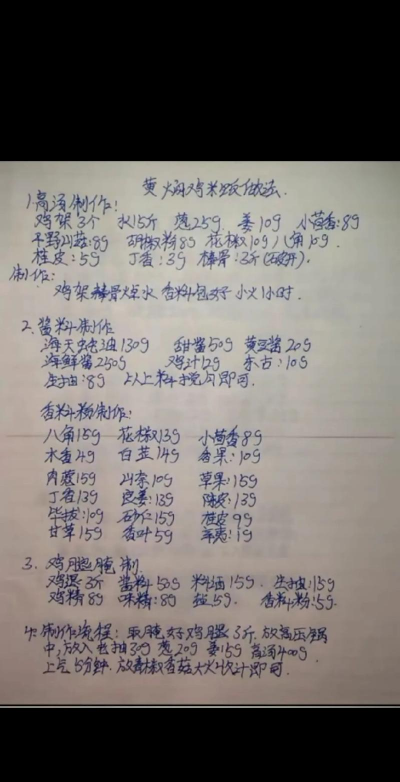 黄焖鸡米饭做法.
1.高汤制作:
鸡架3个 水15斤 葱25g 姜10g 小茴香:8g
胡椒粉8g 花椒10g 八角15g.
桂皮:5g 丁香:3g 棒骨:3斤
制作:
鸡架棒骨焯水 香料包好 小火1小时.
2.酱料制作
海天蚝油130g 甜酱50g 黄豆酱20g
海鲜酱250g 鸡汁12g 东古:10g
生抽:8g 以上料搅匀即可.
香料粉制作:
八角15g 花椒13g 小茴香8g
木香4g 白芷14g 香果:10g
肉蔻15g 山奈10g 草果:15g
丁香13g 良姜:13g 陈皮:13g
毕拔:10g 砂仁15g 桂皮9g
甘草15g 香叶5g 辛夷:1g
3.鸡腿腌制.
鸡腿3斤 酱料50g 料油15g. 生抽:15g
鸡精8g 味精:8g 盐5g. 香料粉:5g.
4:制作流程:取腌好鸡腿3斤.放高压锅
中,放入老抽30g 葱20g 姜15g 高汤400g
上气5分钟.放青椒香菇大火收汁即可.